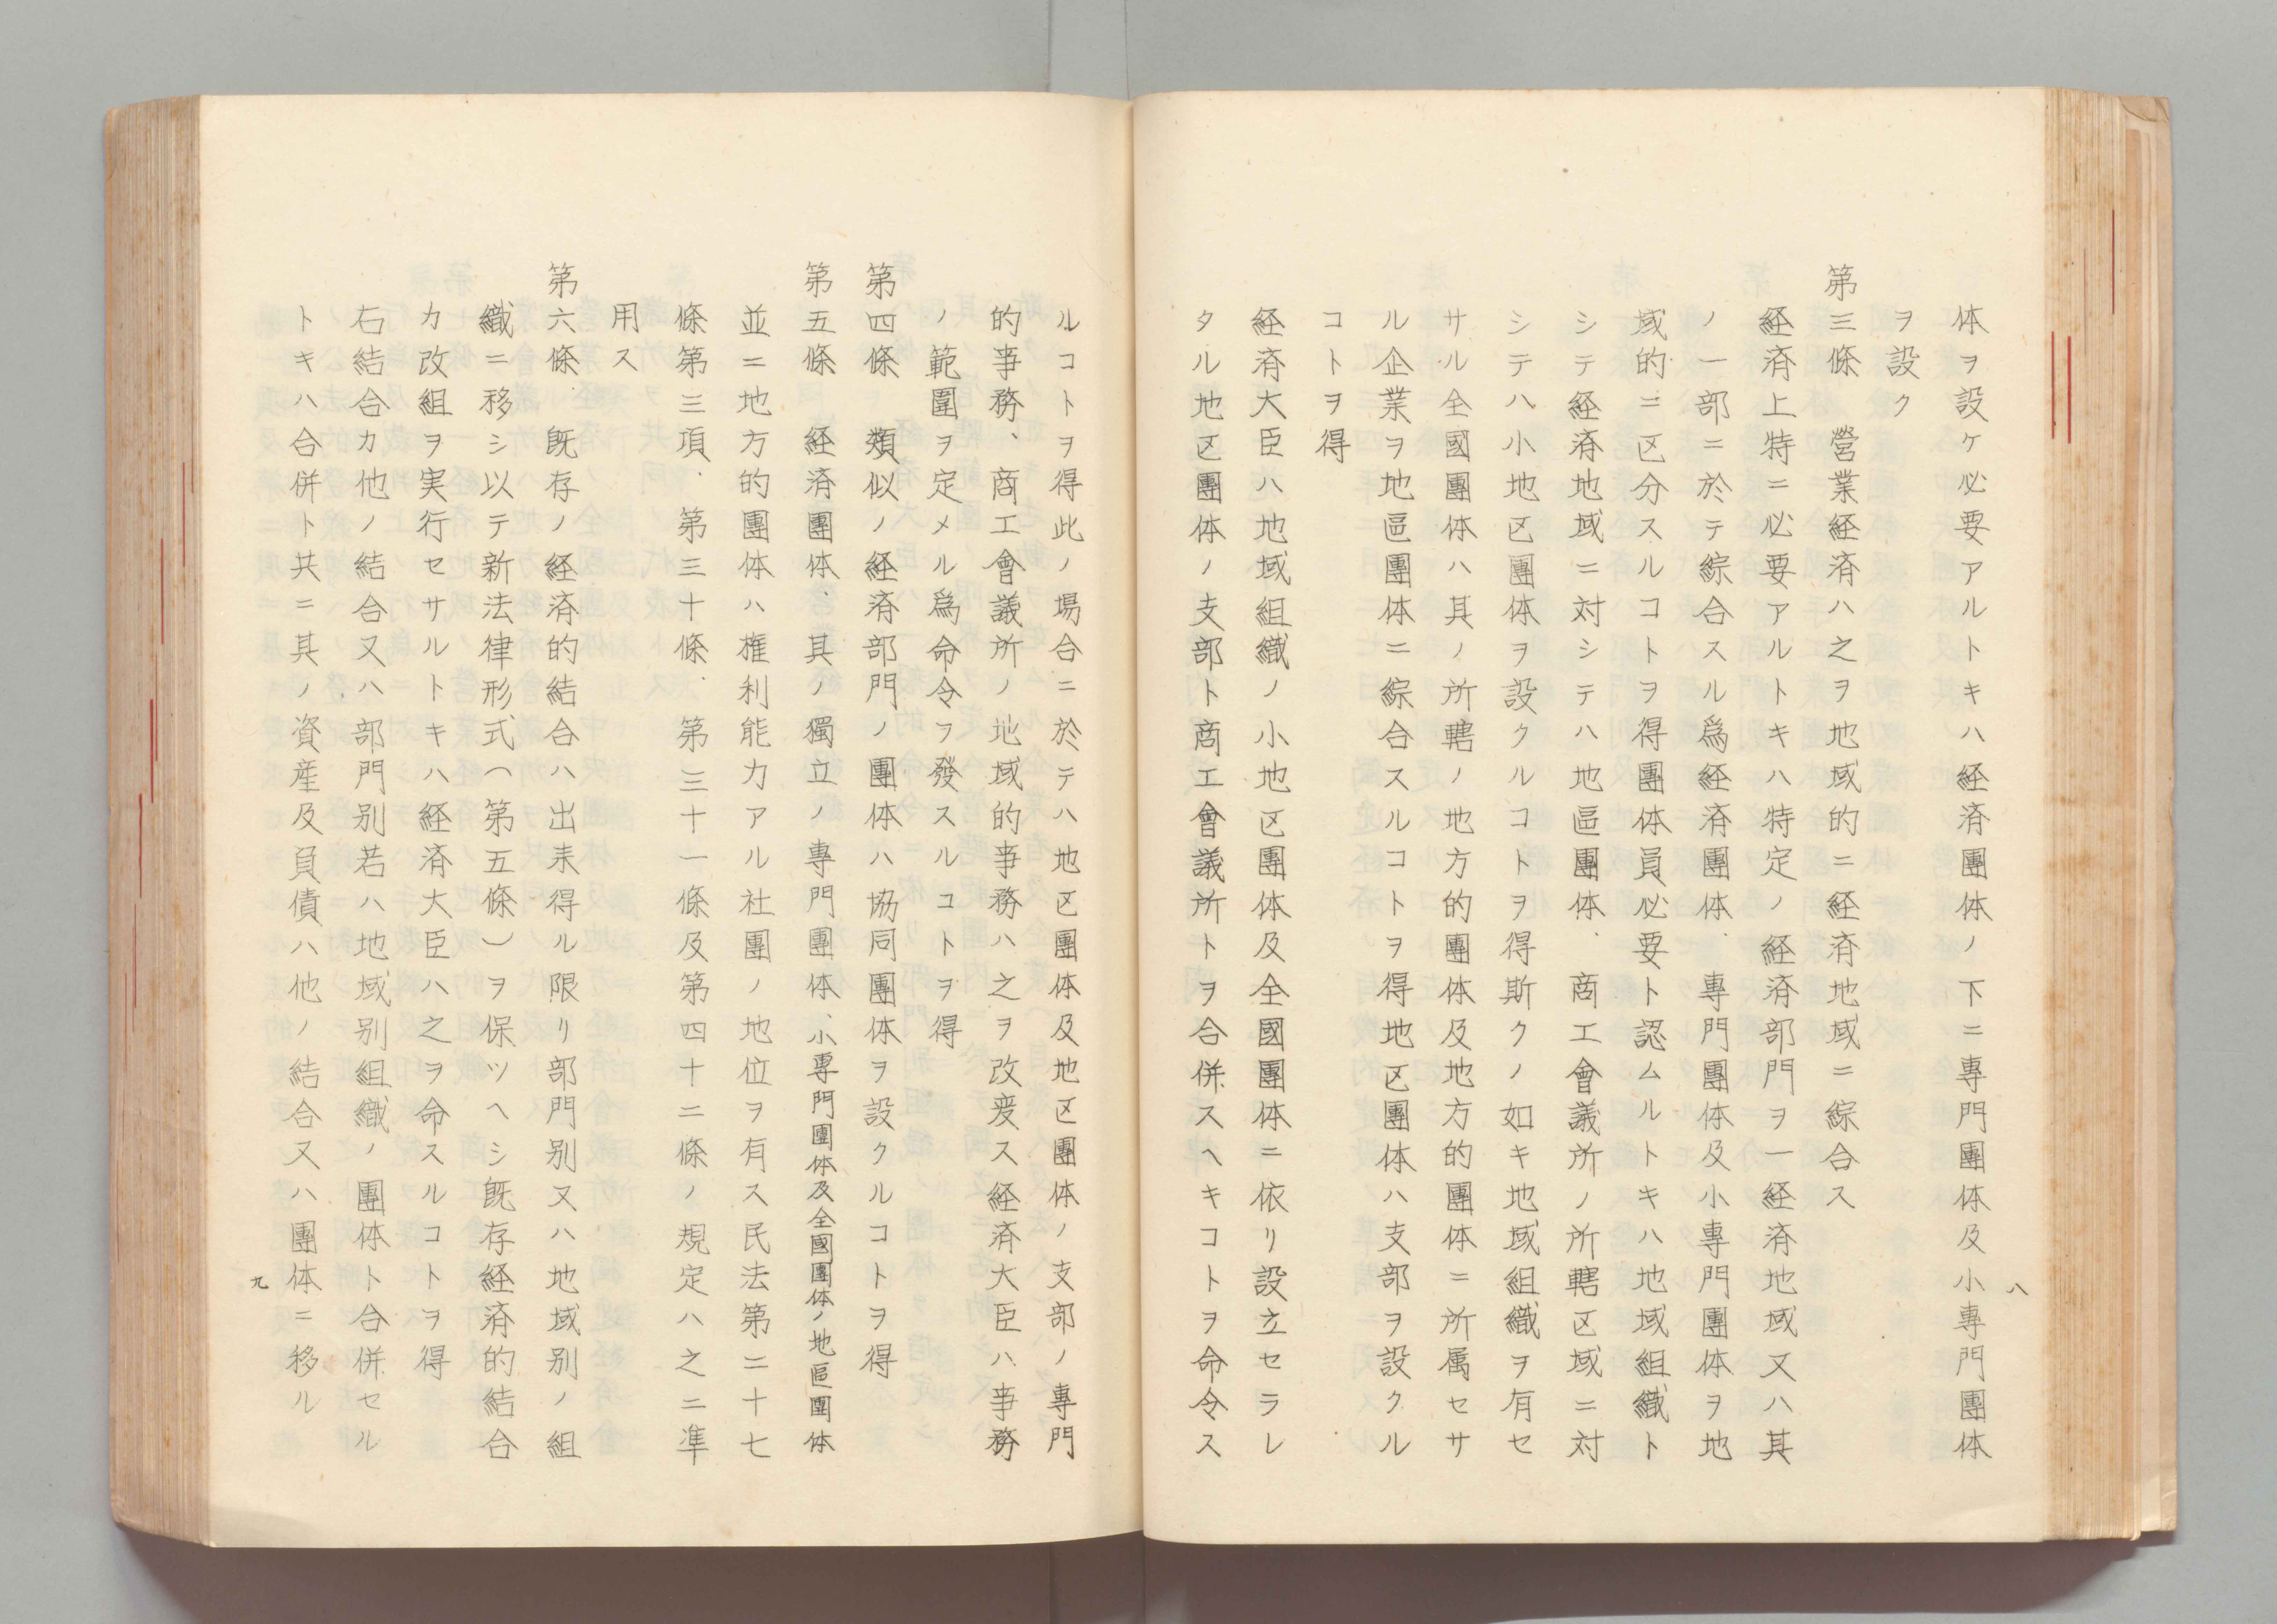 体ヲ設ケ必要アルトキハ経済團体ノ下ニ專門團体及小專門團体
ヲ設ク
第三條　營業経済ハ之ヲ地域的ニ経済地域ニ綜合ス
経済上特ニ必要アルトキハ特定ノ経済部門ヲ一経済地域又ハ其
ノ一部ニ於テ綜合スル爲経済團体、專門團体及小專門團体ヲ地
域的ニ区分スルコトヲ得團体員必要ト認ムルトキハ地域組織ト
シテ経済地域ニ対シテハ地區團体、商工會議所ノ所轄区域ニ対
シテハ小地区團体ヲ設クルコトヲ得斯クノ如キ地域組織ヲ有セ
サル全國團体ハ其ノ所轄ノ地方的團体及地方的團体ニ所属セサ
ル企業ヲ地區團体ニ綜合スルコトヲ得地区團体ハ支部ヲ設クル
コトヲ得
経済大臣ハ地域組織ノ小地区團体及全國團体ニ依リ設立セラレ
タル地区團体ノ支部ト商工會議所トヲ合併スヘキコトヲ命令ス
八
ルコトヲ得此ノ場合ニ於テハ地区團体及地区團体ノ支部ノ專門
的事務、商工會議所ノ地域的事務ハ之ヲ改廃ス経済大臣ハ事務
ノ範圍ヲ定メル爲命令ヲ發スルコトヲ得
第四條　類似ノ経済部門ノ團体ハ協同團体ヲ設クルコトヲ得
第五條　経済團体、其ノ獨立ノ專門團体、小專門團体及全國團体ノ地區團体
並ニ地方的團体ハ権利能力アル社團ノ地位ヲ有ス民法第二十七
條第三項、第三十條、第三十一條及第四十二條ノ規定ハ之ニ準
用ス
第六條　既存ノ経済的結合ハ出来得ル限リ部門別又ハ地域別ノ組
織ニ移シ以テ新法律形式（第五條）ヲ保ツヘシ既存経済的結合
カ改組ヲ実行セサルトキハ経済大臣ハ之ヲ命スルコトヲ得
右結合カ他ノ結合又ハ部門別若ハ地域別組織ノ團体ト合併セル
トキハ合併ト共ニ其ノ資産及負債ハ他ノ結合又ハ團体ニ移ル
九